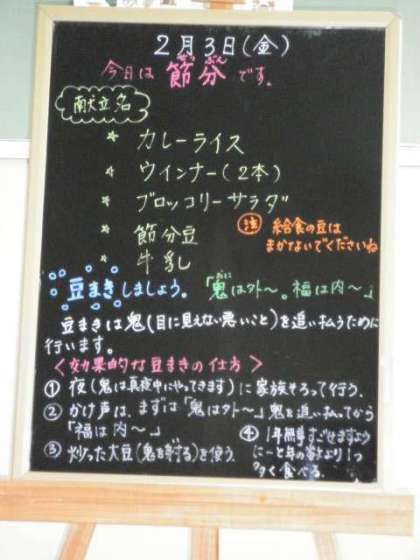 2月3日(金)
今日は 節分 です。
せつ ぶん
献立名
* カレーライス
* ウインナー(2本)
* ブロッコリーサラダ
* 節分豆
* 牛乳
注 給食の豆は
まかないでくださいね
豆まきしましょう。「鬼は外〜。福は内〜」
おに
豆まきは鬼(目に見えない悪いこと)を追い払うために
行います。
<効果的な豆まきの仕方>
① 夜(鬼は真夜中にやってきます)に家族そろって行う。
② かけ声は、まずは「鬼は外〜」鬼を追い払ってから
「福は内〜」
③ 炒った大豆(鬼を射る)を使う。
④ 1年無事すごせますよう
に…と年の数より1つ
多く食べる。